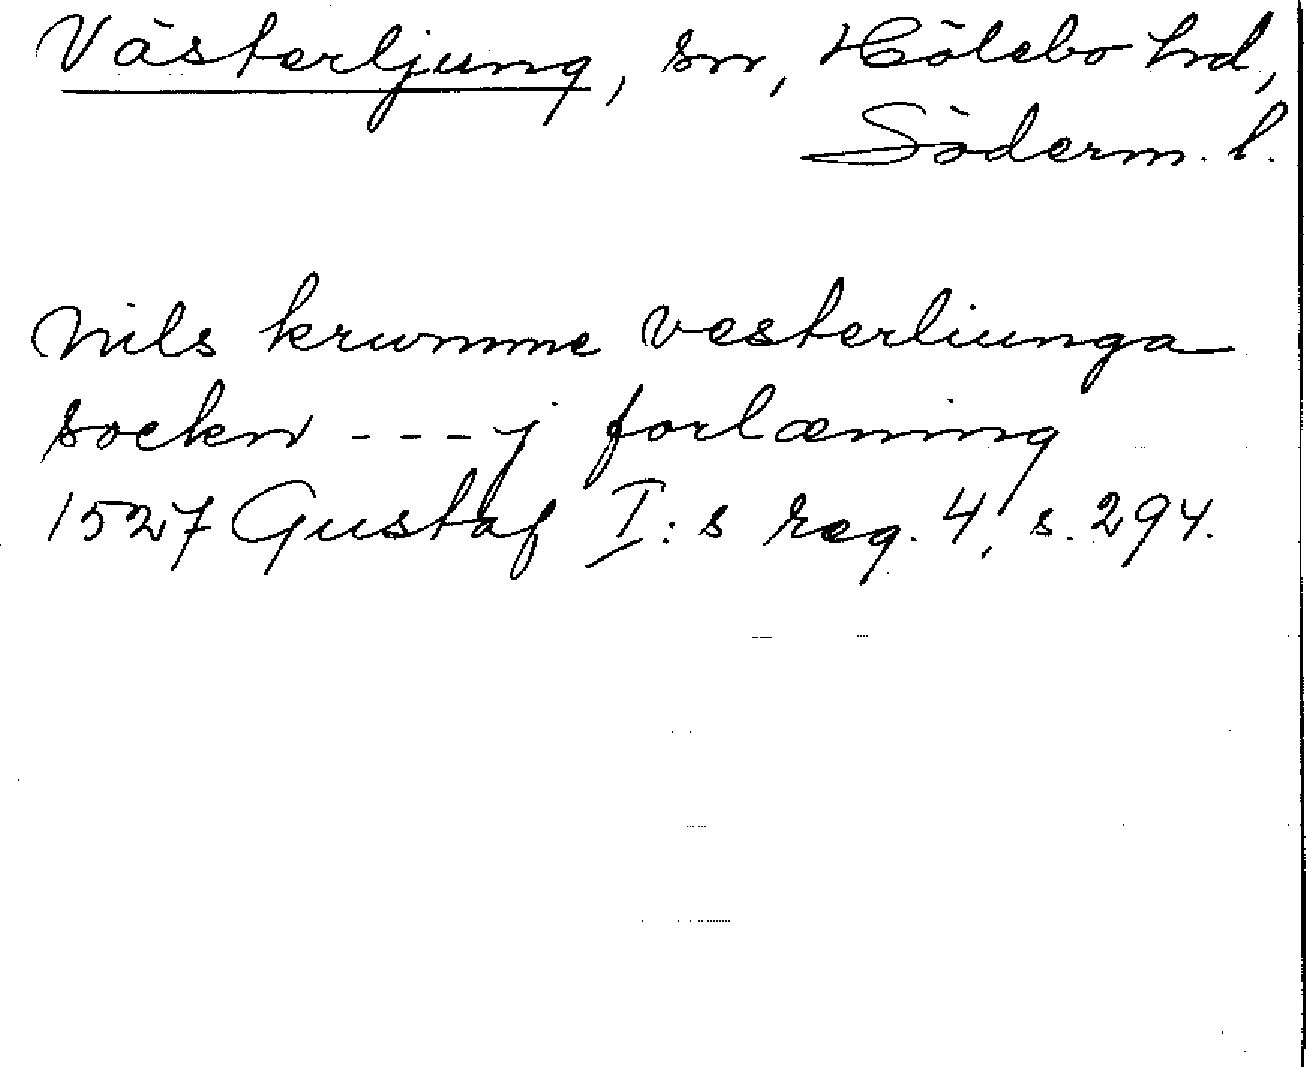 Västerljung, sn, Hölebo hd,
Söderm. l.
Nils krumme vesterliunga
sockn - - - j forlæning
1527 Gustaf I:s reg. 4, s. 294.